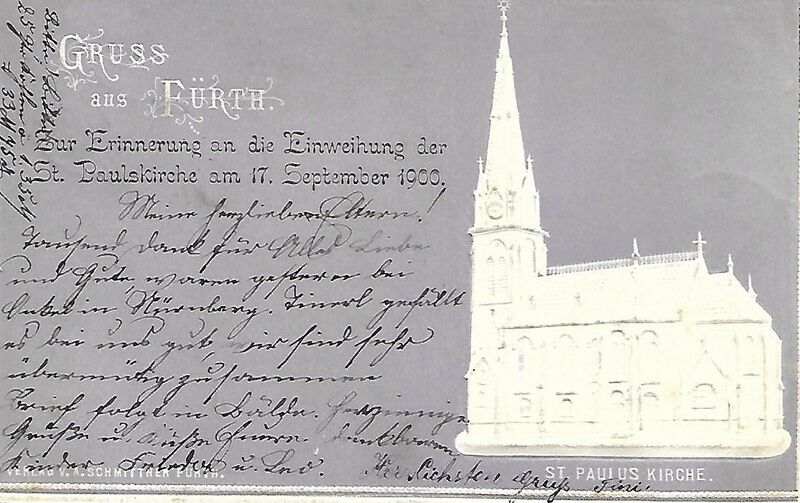 GRUSS
aus FÜRTH.
Zur Erinnerung an die Einweihung der
St. Paulskirche am 17. September 1900.
Meine herzlieben Eltern!
Tausend Dank für Alles Liebe
und Gute, waren gestern bei
Onkel in Nürnberg. Tinerl gefällt
es bei uns gut, wir sind sehr
übermütig zusammen
Brief folgt in Bälde. Herzinnige
Grüße u. Küße Euere dankbaren
Kinder Frieda u. Leo.
Gruß Tini.
VERLAG V. A. SCHMITTNER FÜRTH.
ST. PAULUS KIRCHE.